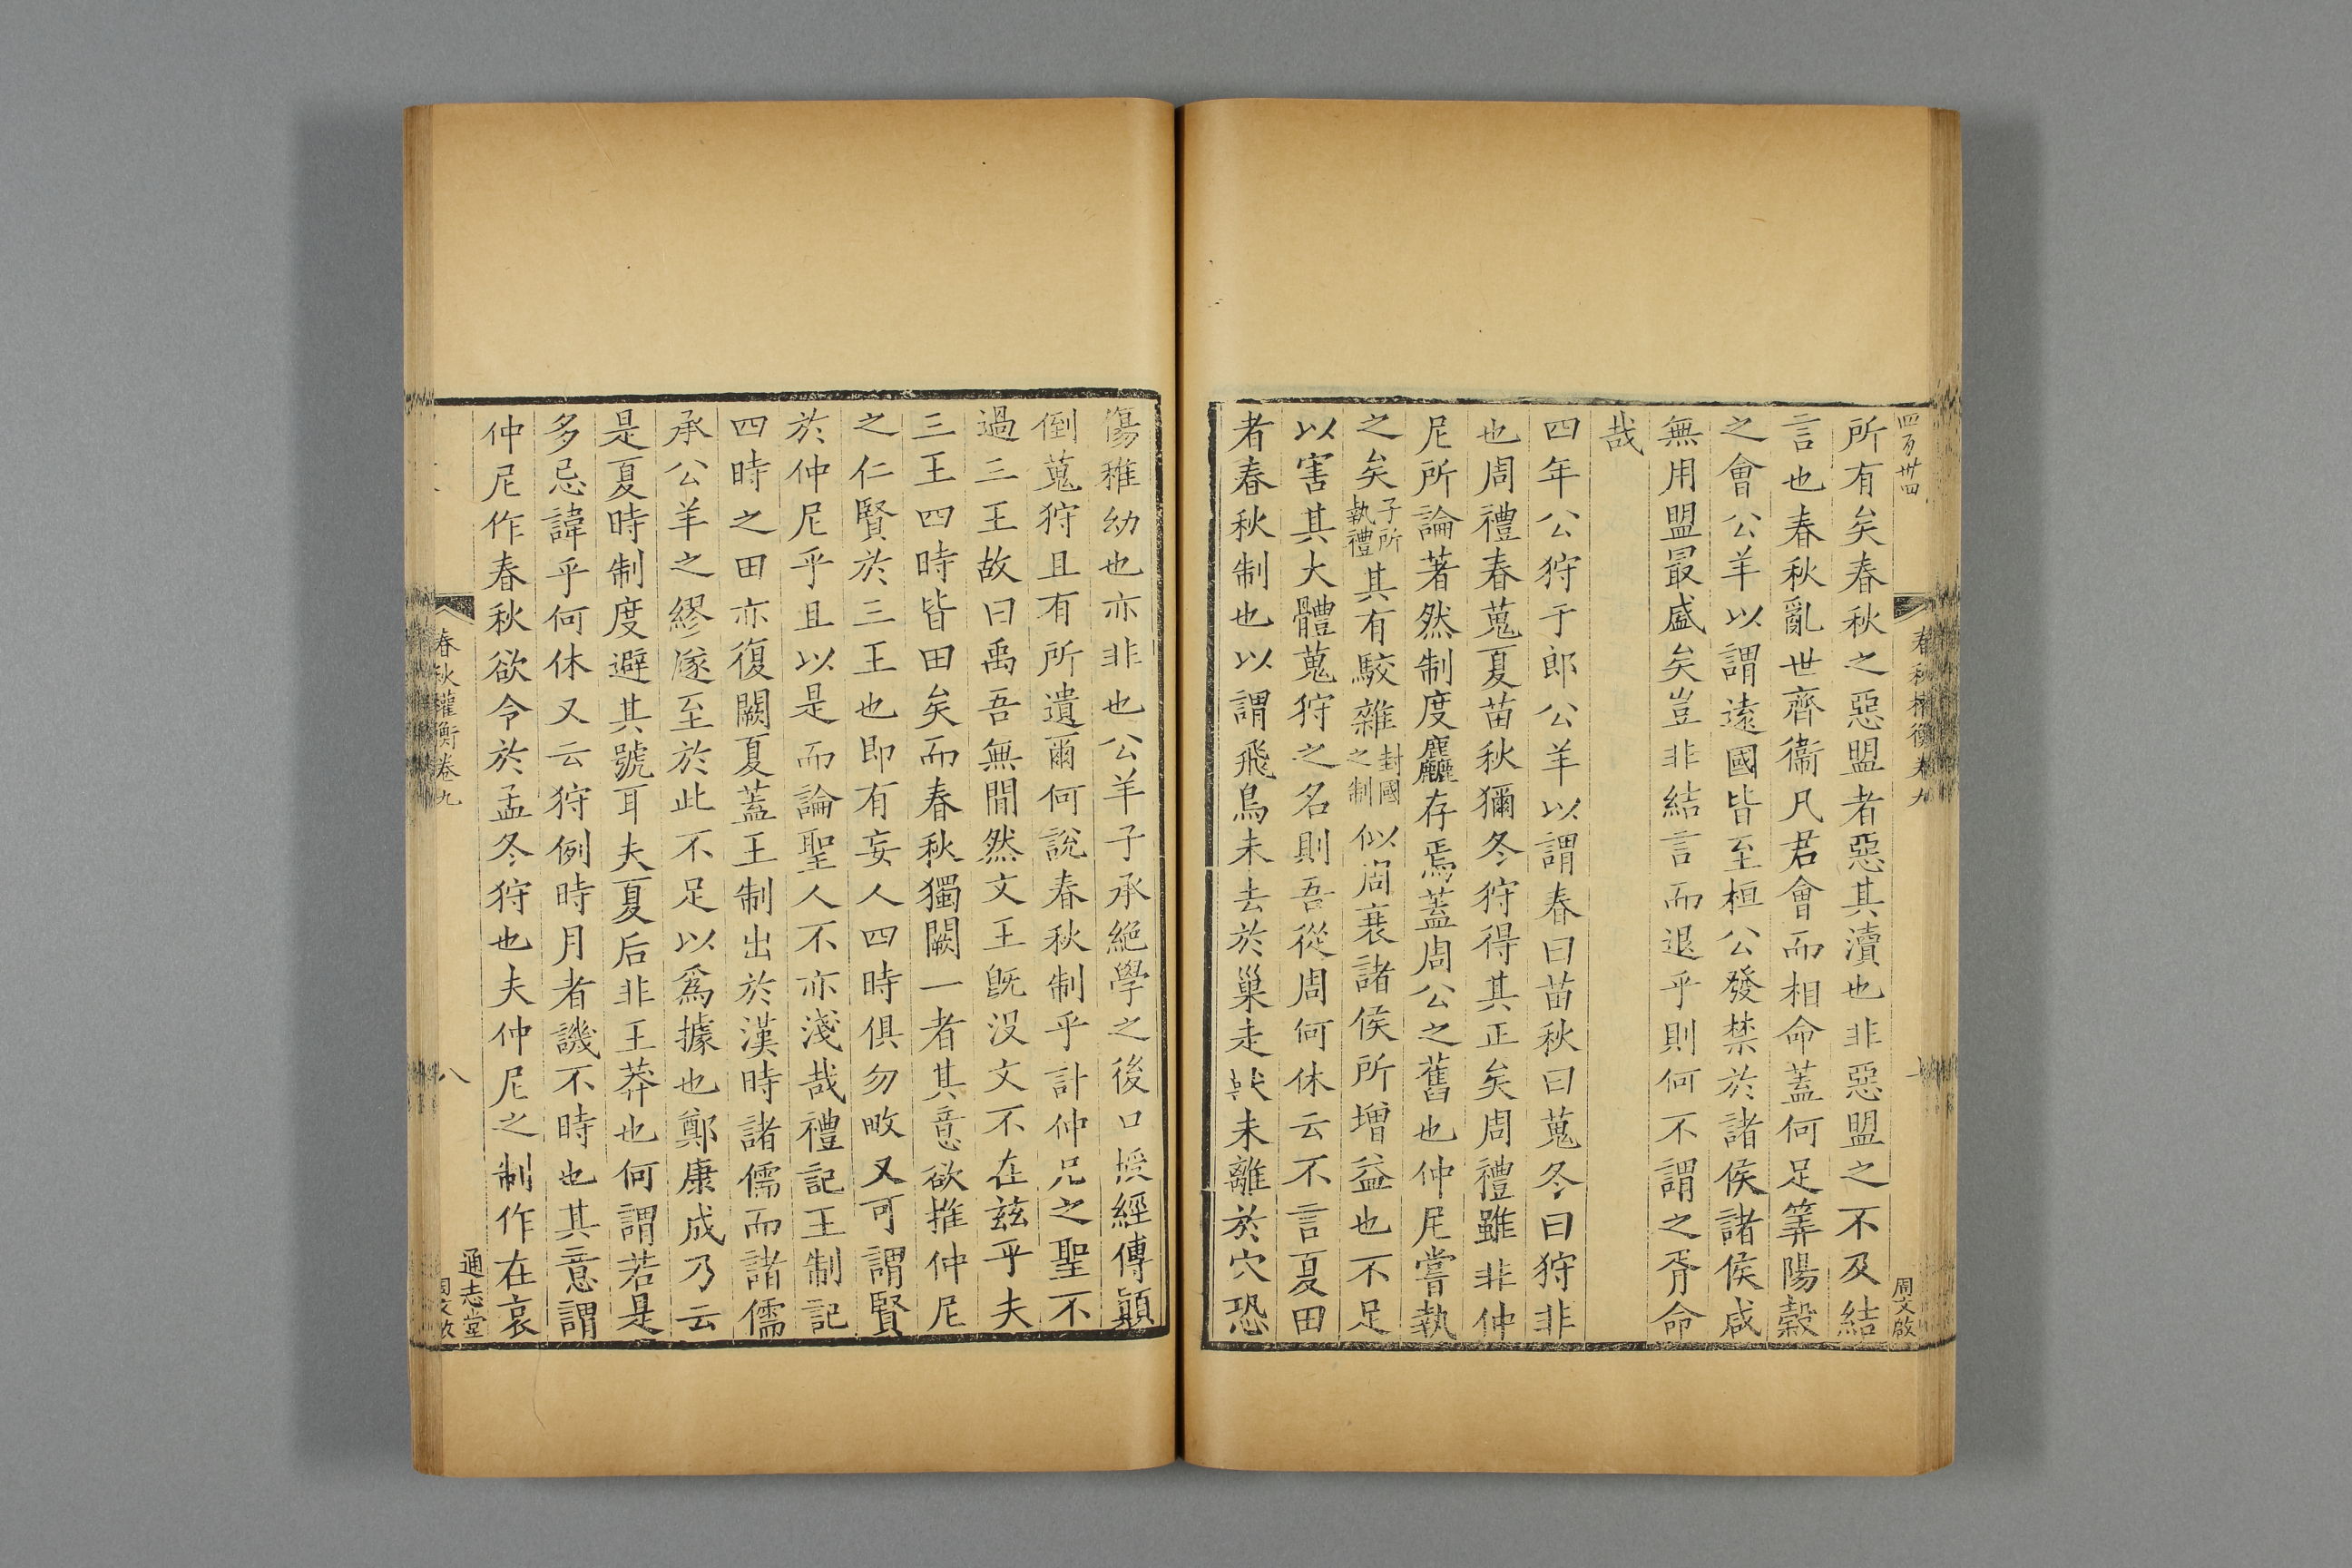 四百卅四
春秋權衡卷九
周文啟
所有矣春秋之惡盟者惡其瀆也非惡盟之不及結
言也春秋亂世齊衞凡君會而相命蓋何足筭陽穀
之會公羊以謂遠國皆至桓公發禁於諸侯諸侯咸
無用盟最盛矣豈非結言而退乎則何不謂之胥命
哉
四年公狩于郎公羊以謂春曰苗秋曰蒐冬曰狩非
也周禮春蒐夏苗秋獮冬狩得其正矣周禮雖非仲
尼所論著然制度麤存焉蓋周公之舊也仲尼嘗執
之矣子所執禮其有駮雜封國之制似周衰諸侯所增益也不足
以害其大體蒐狩之名則吾從周何休云不言夏田
者春秋制也以謂飛鳥未去於巢走獸未離於穴恐
傷稚幼也亦非也公羊子承絕學之後口授經傳顛
倒蒐狩且有所遺爾何說春秋制乎計仲尼之聖不
過三王故曰禹吾無間然文王旣没文不在茲乎夫
三王四時皆田矣而春秋獨闕一者其意欲推仲尼
之仁賢於三王也即有妄人四時俱勿畋又可謂賢
於仲尼乎且以是而論聖人不亦淺哉禮記王制記
四時之田亦復闕夏蓋王制出於漢時諸儒而諸儒
承公羊之繆遂至於此不足以爲據也鄭康成乃云
是夏時制度避其號耳夫夏后非王莽也何謂若是
多忌諱乎何休又云狩例時月者譏不時也其意謂
仲尼作春秋欲令於孟冬狩也夫仲尼之制作在哀
春秋權衡卷九
八
通志堂